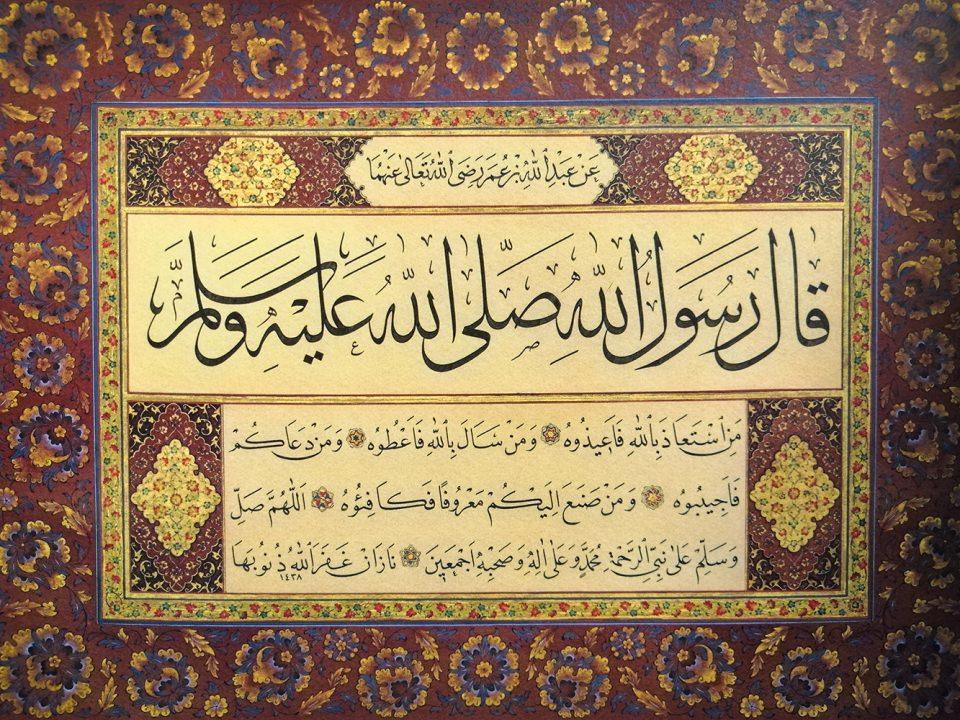 عَنْ عَبْدِ اللهِ بْنِ عُمَرَ رَضِىَ اللهُ تَعَالٰى عَنْهُمَا
قَالَ رَسُولُ اللهِ صَلَّى اللهُ عَلَيْهِ وَسَلَّمَ
مَنِ اسْتَعَاذَ بِاللهِ فَاَعِيذُوهُ وَمَنْ سَاَلَ بِاللهِ فَاَعْطُوهُ وَمَنْ دَعَاكُمْ
فَاَجِيبُوهُ وَمَنْ صَنَعَ اِلَيْكُمْ مَعْرُوفًا فَكَافِئُوهُ اَللّٰهُمَّ صَلِّ
وَسَلِّمْ عَلٰى نَبِىِّ الرَّحْمَةِ مُحَمَّدٍ وَعَلٰى اٰلِهِ وَصَحْبِهِ اَجْمَعِينَ نازان غَفَرَ اللهُ ذُنُوبَهَا ١٤٣٨